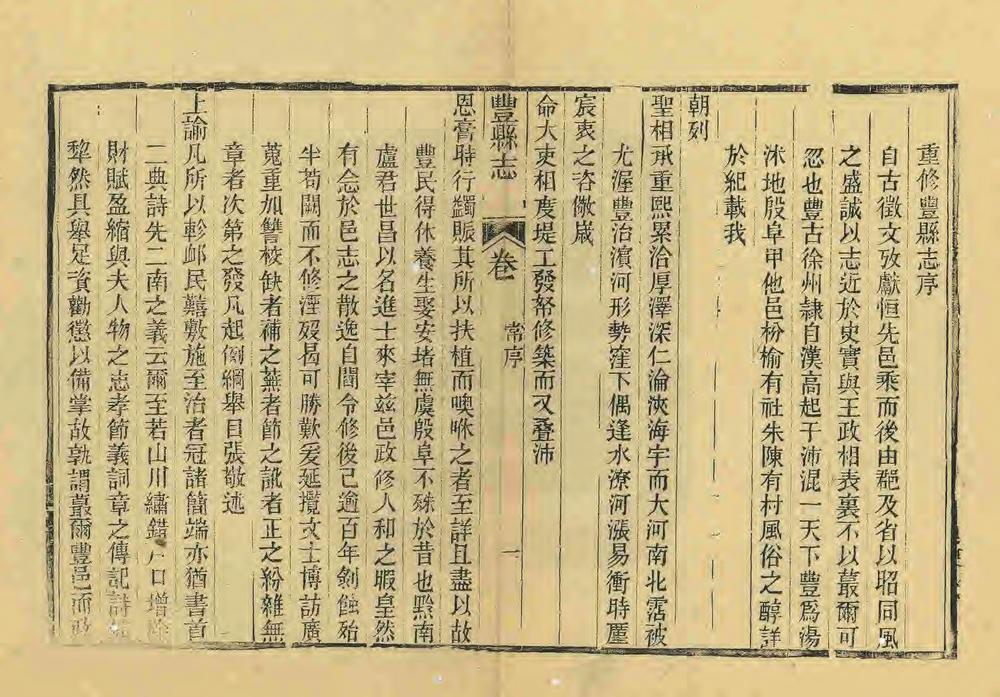 重修豐縣志序
自古徵文攷獻恒先邑乘而後由郡及省以昭同風
之盛誠以志近於史實與王政相表裏不以蕞爾可
忽也豐古徐州隸自漢高起于沛混一天下豐爲湯
沐地殷阜甲他邑枌榆有社朱陳有村風俗之醇詳
於紀載我
朝列
聖相承重熙累洽厚澤深仁淪浹海宇而大河南北霑被
尤渥豐治濱河形勢窪下偶逢水潦河漲易衝時廑
宸衷之咨儆嵗
命大吏相度堤工發帑修築而又疊沛
豐縣志 卷 常序 一
恩膏時行蠲賑其所以扶植而噢咻之者至詳且盡以故
豐民得休養生娶安堵無虞殷阜不殊於昔也黔南
盧君世昌以名進士來宰兹邑政修人和之暇皇然
有念於邑志之散逸自閻令修後己逾百年剝蝕殆
半苟闕而不修湮殁曷可勝歎爰延攬文士博訪廣
蒐重加讐校缺者補之蕪者節之訛者正之紛雜無
章者次第之發凡起例綱舉目張敬述
上諭凡所以軫邮民囏敷施至治者冠諸簡端亦猶書首
二典詩先二南之義云爾至若山川繡錯戶口增
財賦盈縮與夫人物之忠孝節義詞章之傳記詩
犂然具舉足資勸懲以備掌故孰謂蕞爾豐邑而